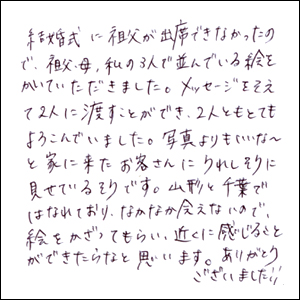 結婚式に祖父が出席できなかったの
で、祖父、母、私の3人で並んでいる絵を
かいていただきました。メッセージをそえ
て2人に渡すことができ、2人ともとても
よろこんでいました。写真よりもいいな~
と家に来たお客さんにうれしそうに
見せているそうです。山形と千葉で
はなれており、なかなか会えないので、
絵をかざってもらい、近くに感じること
ができたらなと思います。ありがとう
ございました!!